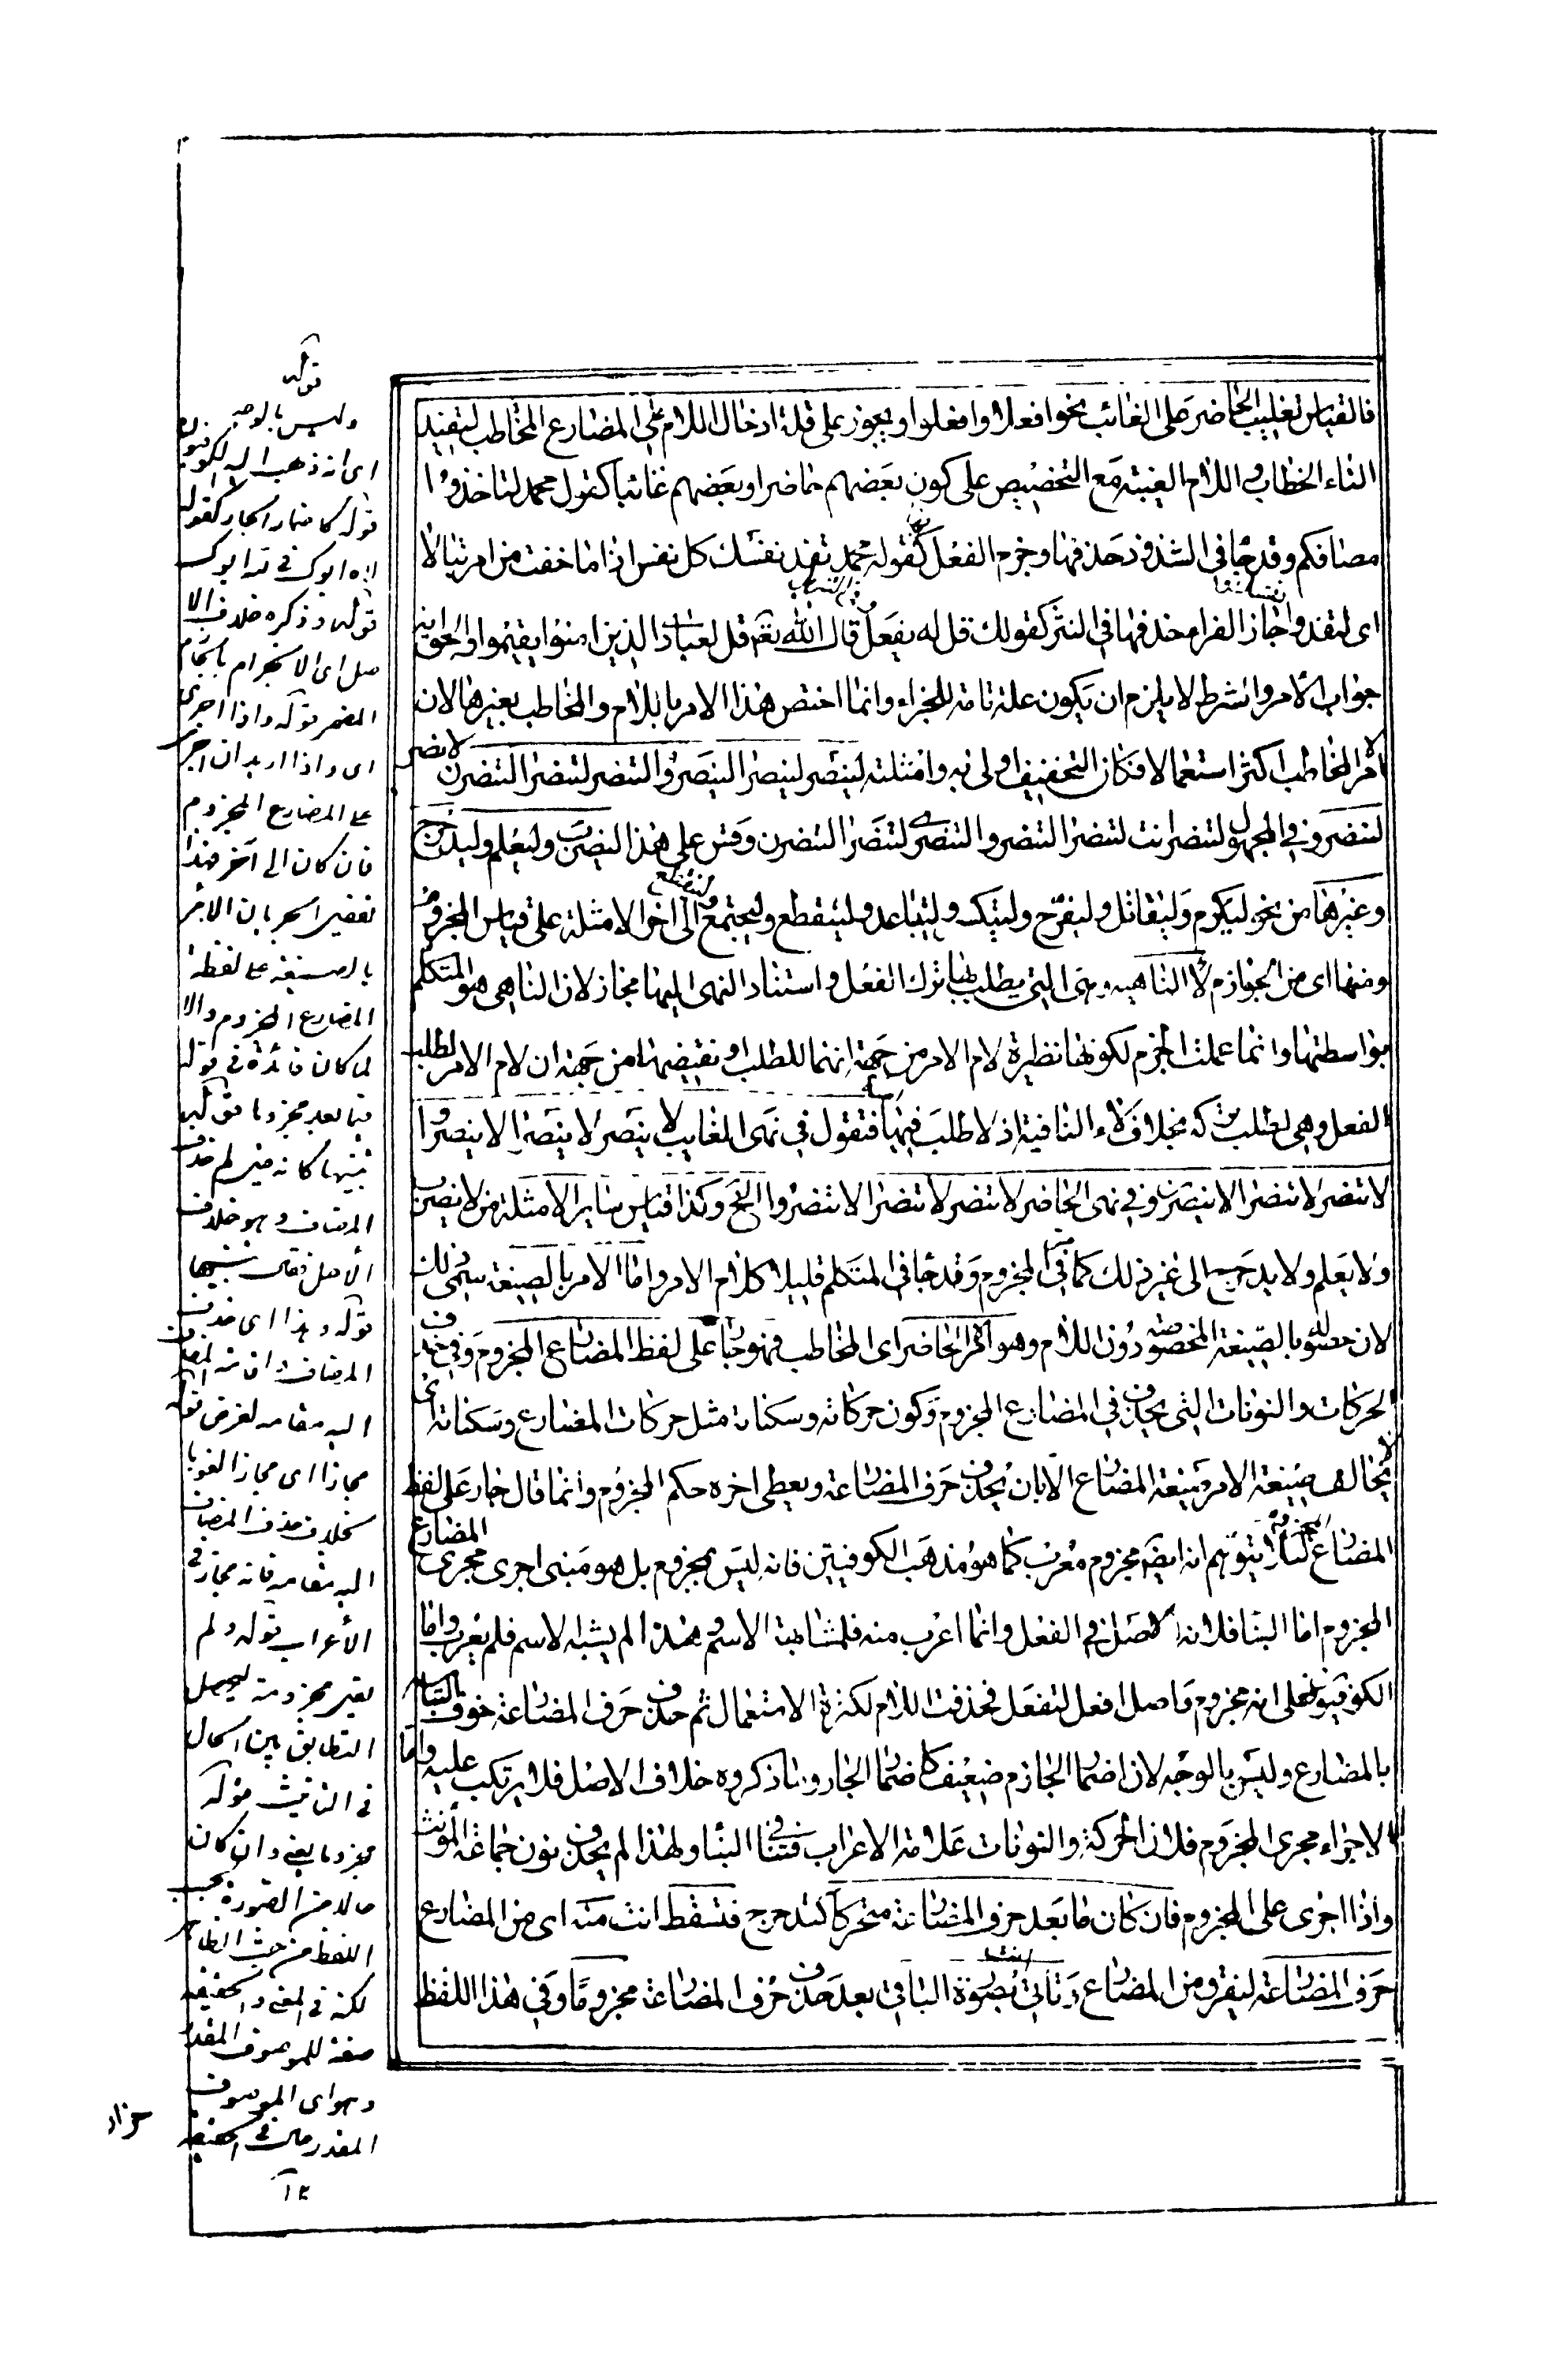 فالقياس تغليب الحاضر على الغائب نحو افعلا وافعلوا ويجوز على قلة ادخال اللام على المضارع المخاطب ليفيد
التاء الخطاب واللام الغيبة مع التخصيص على كون بعضهم حاضرا وبعضهم غائبا كقول محمد لتاخذوا
مصافكم وقد جا في الشذوذ حذفها وجزم الفعل كقوله محمد تفد نفسك كل نفس اذا ما خفت من امر تبالا
اى لتفد واجاز الفراء حذفها في النثر كقولك قل له يفعل قال الله تعم قل لعبادى الذين امنوا يقيموا والحق انه
جواب الأمر والشرط لا يلزم ان يكون علة تامة للجزاء وانما اختص هذا الامر باللام والمخاطب بغيرها لان
امر المخاطب اكثر استعمالا فكان التخفيف اولى به وامثلته لينصر لينصرا لينصروا لتنصر لتنصرا لينصرن لانصر
لننصر وفي المجهول لتنصر انت لتنصرا لتنصروا لتنصرى لتنصرا لتنصرن وقس على هذا ليضرب وليعلم وليدحرج
وغيرها من نحو ليكرم وليقاتل وليفرح وليتكسر وليتباعد ولينقطع وليجتمع الى اخر الامثلة على قياس المجزوم
ومنها اى من الجوازم لا الناهية وهى التي يطلب بها ترك الفعل واسناد النهى اليها مجاز لان الناهى هو المتكلم
بواسطتها وانما عملت الجزم لكونها نظيرة لام الامر من جهة انهما للطلب او نقيضها من جهة ان لام الامر لطلب
الفعل وهى لطلب تركه بخلاف لاء النافية اذ لا طلب فيها فتقول في نهى الغايب لا ينصر لا ينصرا لا ينصروا
لا تنصر لا تنصرا لا ينصرن وفي نهى الحاضر لا تنصر لا تنصرا لا تنصروا الخ وكذا قياس ساير الامثلة من لا يضرب
ولا يعلم ولا يدحرج الى غير ذلك كما في المجزوم وقد جا في المتكلم قليلا كلام الامر واما الامر بالصيغة سمى ذلك
لان حصوله بالصيغة المخصوصة دون اللام وهو امر الحاضر اى المخاطب فهو جار على لفظ المضارع المجزوم في حذف
الحركات والنونات التى يحذف في المضارع المجزوم وكون حركاته وسكناته مثل حركات المضارع وسكناته اى
لا يخالف صيغة الامر صيغة المضارع الا بان يحذف حرف المضارعة ويعطى اخره حكم المجزوم وانما قال جار على لفظ
المضارع المجزوم لئلا يتوهم انه ايضا مجزوم معرب كما هو مذهب الكوفيين فانه ليس بمجزوم بل هو مبنى اجرى مجرى المضارع
المجزوم اما البنا فلانه الاصل في الفعل وانما اعرب منه فلمشابهة الاسم وهذا لم يشبه الاسم فلم يعرب واما
الكوفيون فعلى انه مجزوم واصل افعل لتفعل فحذفت اللام لكثرة الاستعمال ثم حذف حرف المضارعة خوف التباسه
بالمضارع وليس بالوجه لان اضمار الجازم ضعيف كاضمار الجار وما ذكروه خلاف الاصل فلا يرتكب عليه واما
الاجراء مجرى المجزوم فلان الحركة والنونات علامة الاعراب فتنافي البناء ولهذا لم يحذف نون جماعة المؤنث
واذا اجرى على المجزوم فان كان ما بعد حرف المضارعة متحركا كتدحرج فتسقط انت منه اى من المضارع
حرف المضارعة ليفرق من المضارع وتاتى بصورة الباقى بعد حذف حرف المضارعة مجزوما وفي هذا اللفظ
قوله
وليس بالوجه
اى انه ذهب اليه الكوفيون
قوله كاضمار الجار كقوله
قوله وذكره خلاف الا
المضمر قوله واذا اجرى
اى واذا اريد ان اجرى
على المضارع المجزوم
فان كان الى آخر هذا
بالصيغة على لفظه
المضارع المجزوم والا
لما كان فائدة في قوله
المضاف وهو خلاف
قوله وهذا اى حذف
اليه مقامه لغرض قوله
مجازا اى مجازا لغويا
بخلاف حذف المضاف
اليه مقامه فانه مجاز في
الأعراب قوله ولم
التطابق بين الحال
فى التانيث قوله
مجزوما يعنى وان كان
حالا من الصورة بحسب
اللفظ من حيث الظاهر
لكنه فى المعنى والحقيقة
صفة للموصوف المقدر
وهو اى الموصوف
المقدر حال فى الحقيقة
١٢